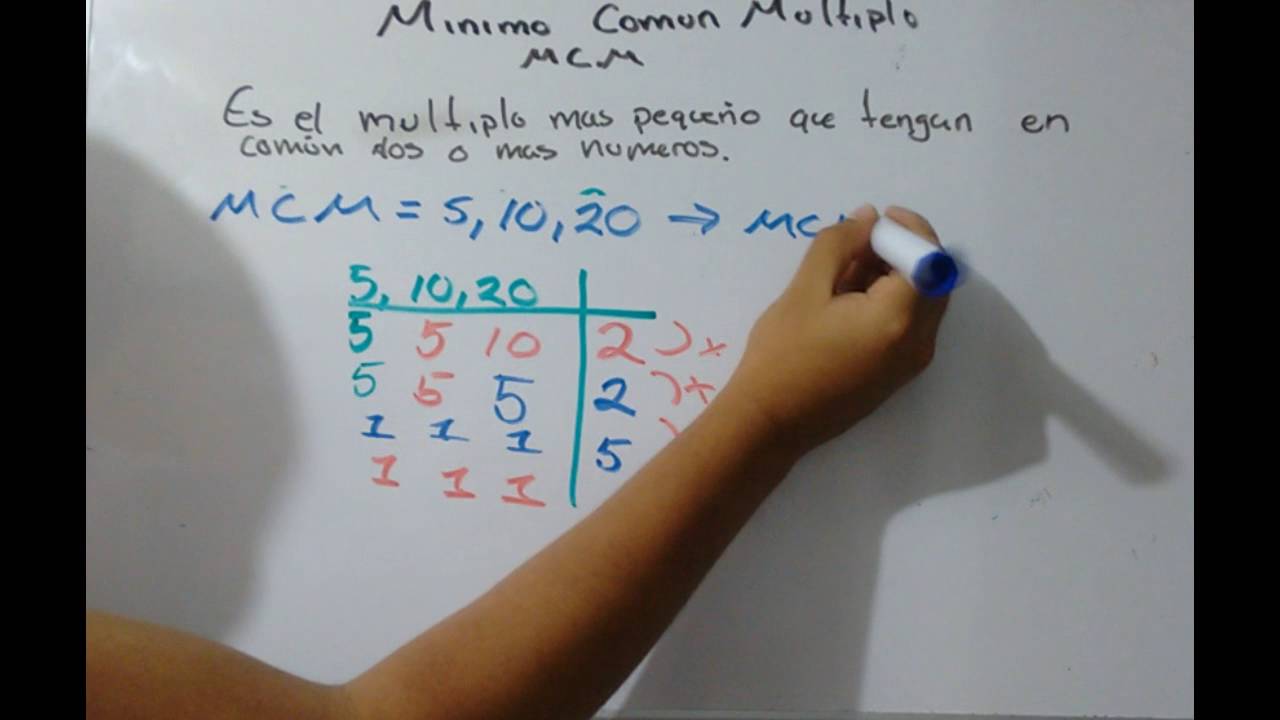 Minimo Comun Multiplo
MCM
Es el multiplo mas pequeño que tengan en
común dos o mas numeros.
MCM = 5, 10, 20 → MC
5, 10, 20
5 5 10 2 )x
5 5 5 2 )x
1 1 1 5 )
1 1 1